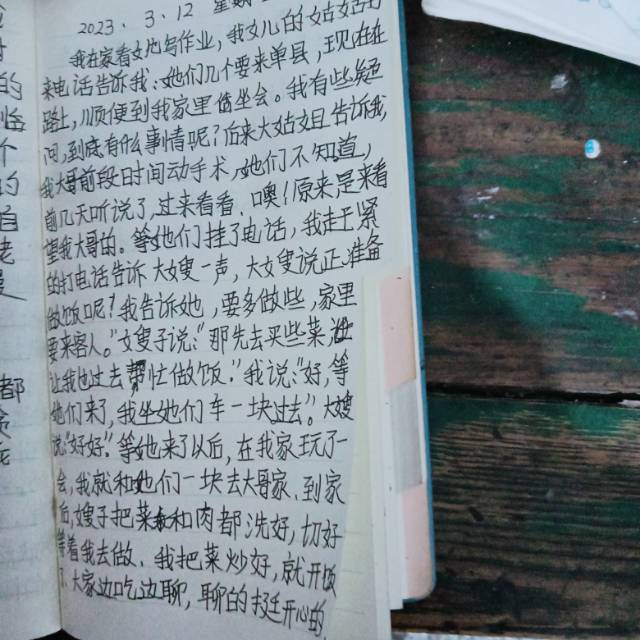 2023. 3. 12 星期
我在家看女儿写作业,我女儿的姑姑
来电话告诉我:她们几个要来单县,现在在
路上,顺便到我家里坐会。我有些疑
问,到底有什么事情呢?后来大姑姐告诉我,
我大哥前段日时间动手术,她们不知道,
前几天听说了,过来看看、噢!原来是来看
望我大哥的。等她们挂了电话,我赶紧
的打电话告诉大嫂一声,大嫂说正准备
做饭呢?我告诉她,要多做些,家里
要来客人。"嫂子说:"那先去买些菜
让我也过去帮忙做饭."我说:"好,等
她们来了,我坐她们车一块过去"。大嫂
说"好好".等她来了以后,在我家玩了一
会,我就和她们一块去大哥家.到家
后,嫂子把菜和肉都洗好,切好
等着我去做.我把菜炒好,就开饭
大家边吃边聊,聊的挺开心的,
的
临
个
的
自
老
是
都